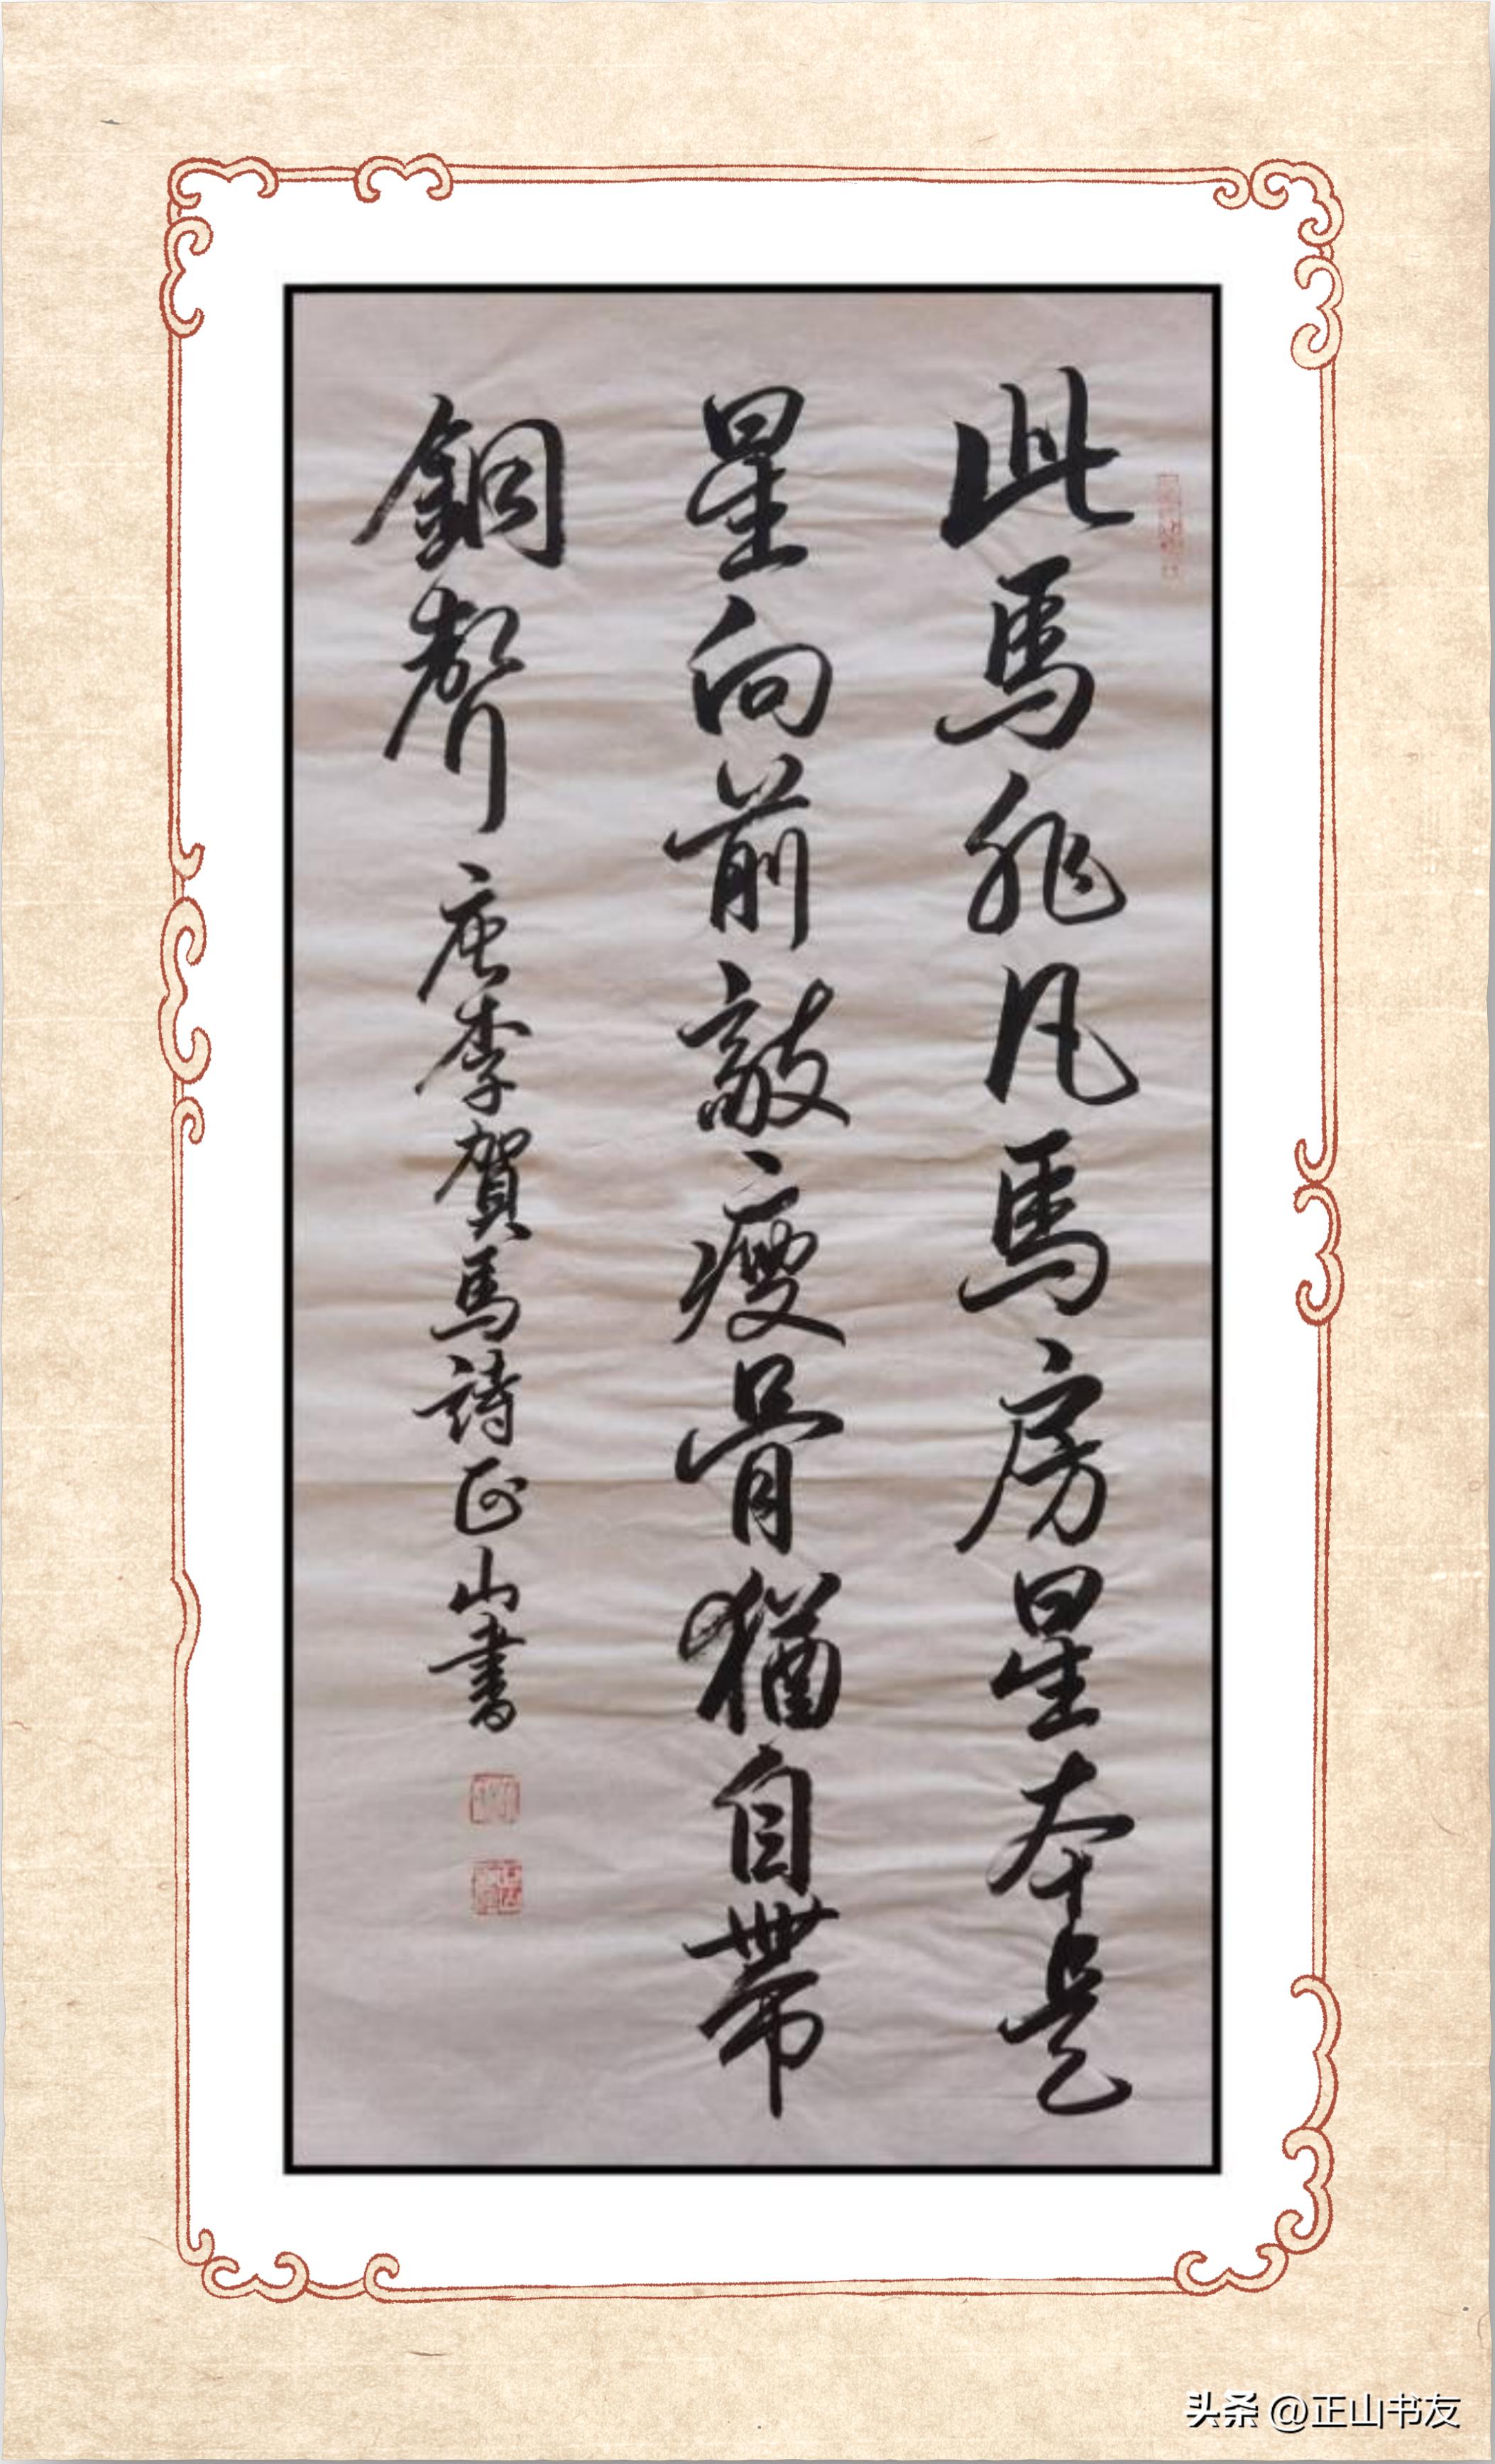 此馬非凡馬房星本是
星向前敲瘦骨猶自帶
銅聲 唐李賀馬詩正山書
头条 @正山书友